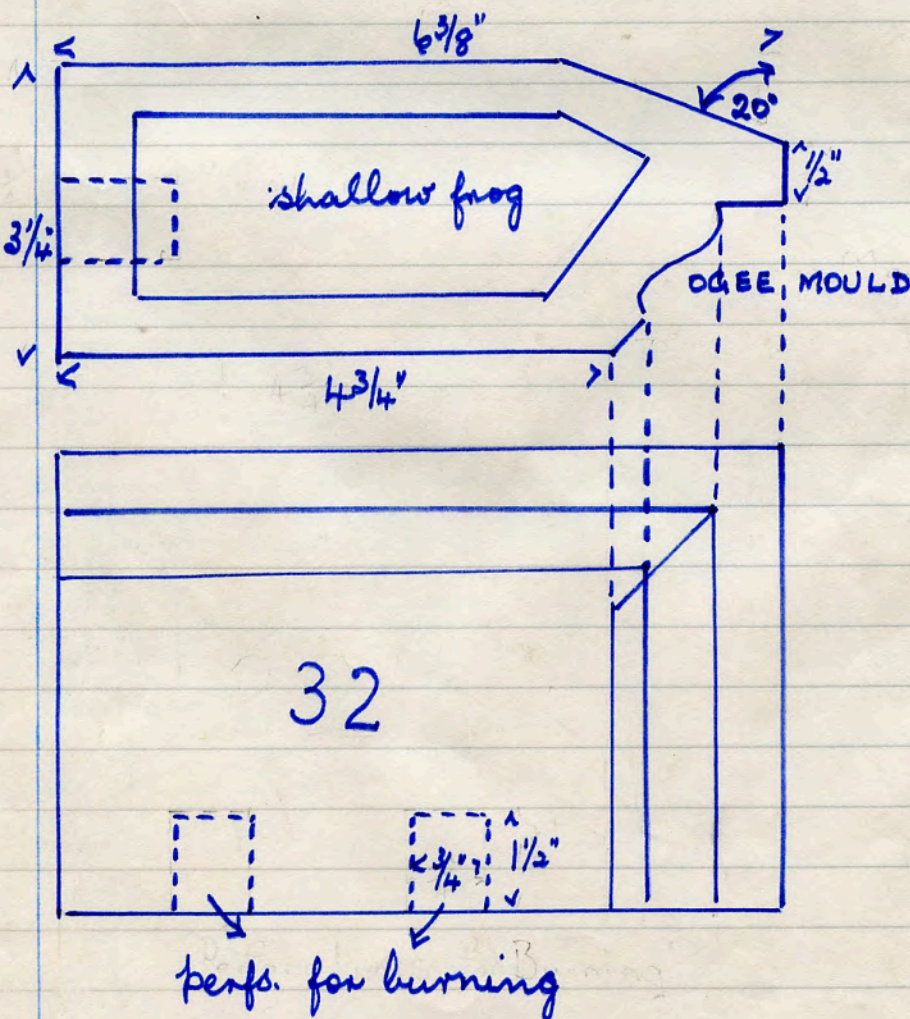 6 3/8"
20°
1/2"
shallow frog
3 1/4"
OGEE MOULD
4 3/4"
32
3/4"
1 1/2"
perfs. for burning